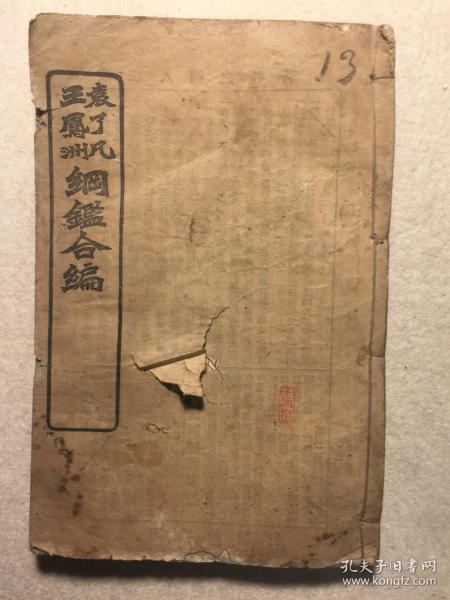 袁了凡
王鳳洲
綱鑑合編
13
孔夫子旧书网
www.kongfz.com